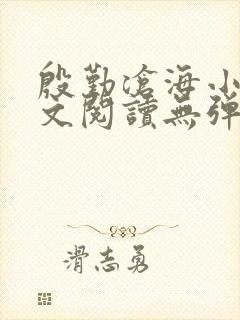 殷勤滄海小
文閱讀無彈
滑志勇